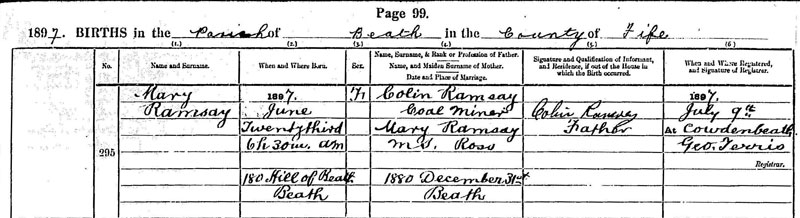 Page 99.
1897. BIRTHS in the Parish of Beath in the County of Fife
(1.) (2.) (3.) (4.) (5.) (6.)
No. Name and Surname. When and Where Born. Sex. Name, Surname, & Rank or Profession of Father. Name, and Maiden Surname of Mother. Date and Place of Marriage. Signature and Qualification of Informant, and Residence, if out of the House in which the Birth occurred. When and Where Registered, and Signature of Registrar.
Mary 1897. F Colin Ramsay 1897.
Ramsay June Coal Miner Colin Ramsay July 9th
Twentythird Mary Ramsay Father At Cowdenbeath
295 6h 30m. am M.S. Ross Geo. Terris
Registrar.
180 Hill of Beath 1880 December 31st
Beath Beath